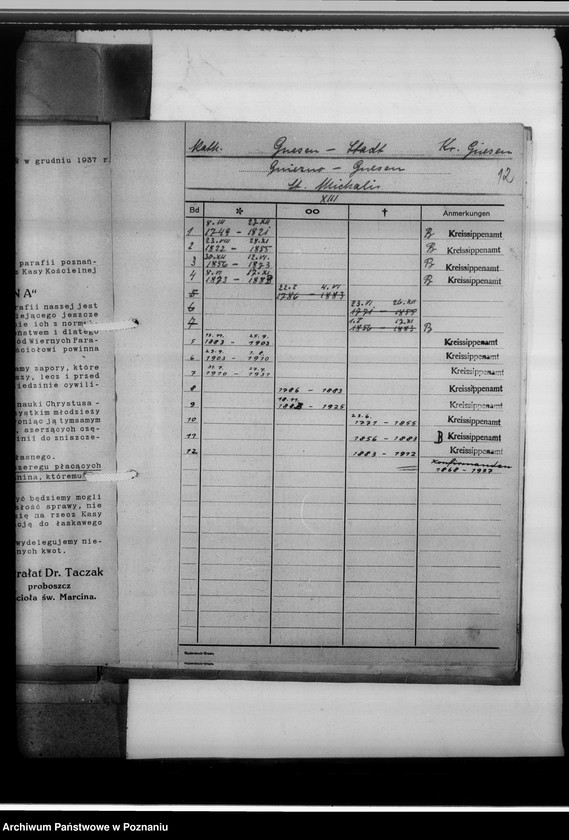 w grudniu 1937 r.
parafii poznań-
z Kasy Kościelnej
NA"
rafii naszej jest
iejącego jeszcze
ie ich z norm
ństwem i dlatego
ód Wiernych Para-
ściołowi powinna
amy zapory, które
szy, lecz i przed
iedzinie cywili-
nauki Chrystusa -
ystkim młodzieży
oniąc ją tymsamym
, szerzących czę-
inii do zniszcze-
łasnego.
zeregu płacących
nina, któremu
yć będziemy mogli
słość sprawy, nie
ię na rzecz Kasy
oją do łaskawego
wydelegujemy nie-
nych kwot.
rałat Dr. Taczak
proboszcz
cioła św. Marcina.
Kath. Gnesen - Stadt Kr. Gnesen
Gniezno - Gnesen
St. Michalis
12
XIII
Bd * ∞ † Anmerkungen
1 1749 - 1821 B Kreissippenamt
2 1822 - 1855 B Kreissippenamt
3 1856 - 1873 B Kreissippenamt
4 1873 - B Kreissippenamt
5 1786 - 1883
6 1771 - 1855
7 1856 - 1883 B
5 1883 - 1903 Kreissippenamt
6 1903 - 1910 Kreissippenamt
7 1910 - 1937 Kreissippenamt
8 1786 - 1883 Kreissippenamt
9 - 1925 Kreissippenamt
10 1771 - 1855 Kreissippenamt
11 1856 - 1883 B Kreissippenamt
12 1883 - 1912 Kreissippenamt
Konfirmanden
1868 - 1937
Archiwum Państwowe w Poznaniu